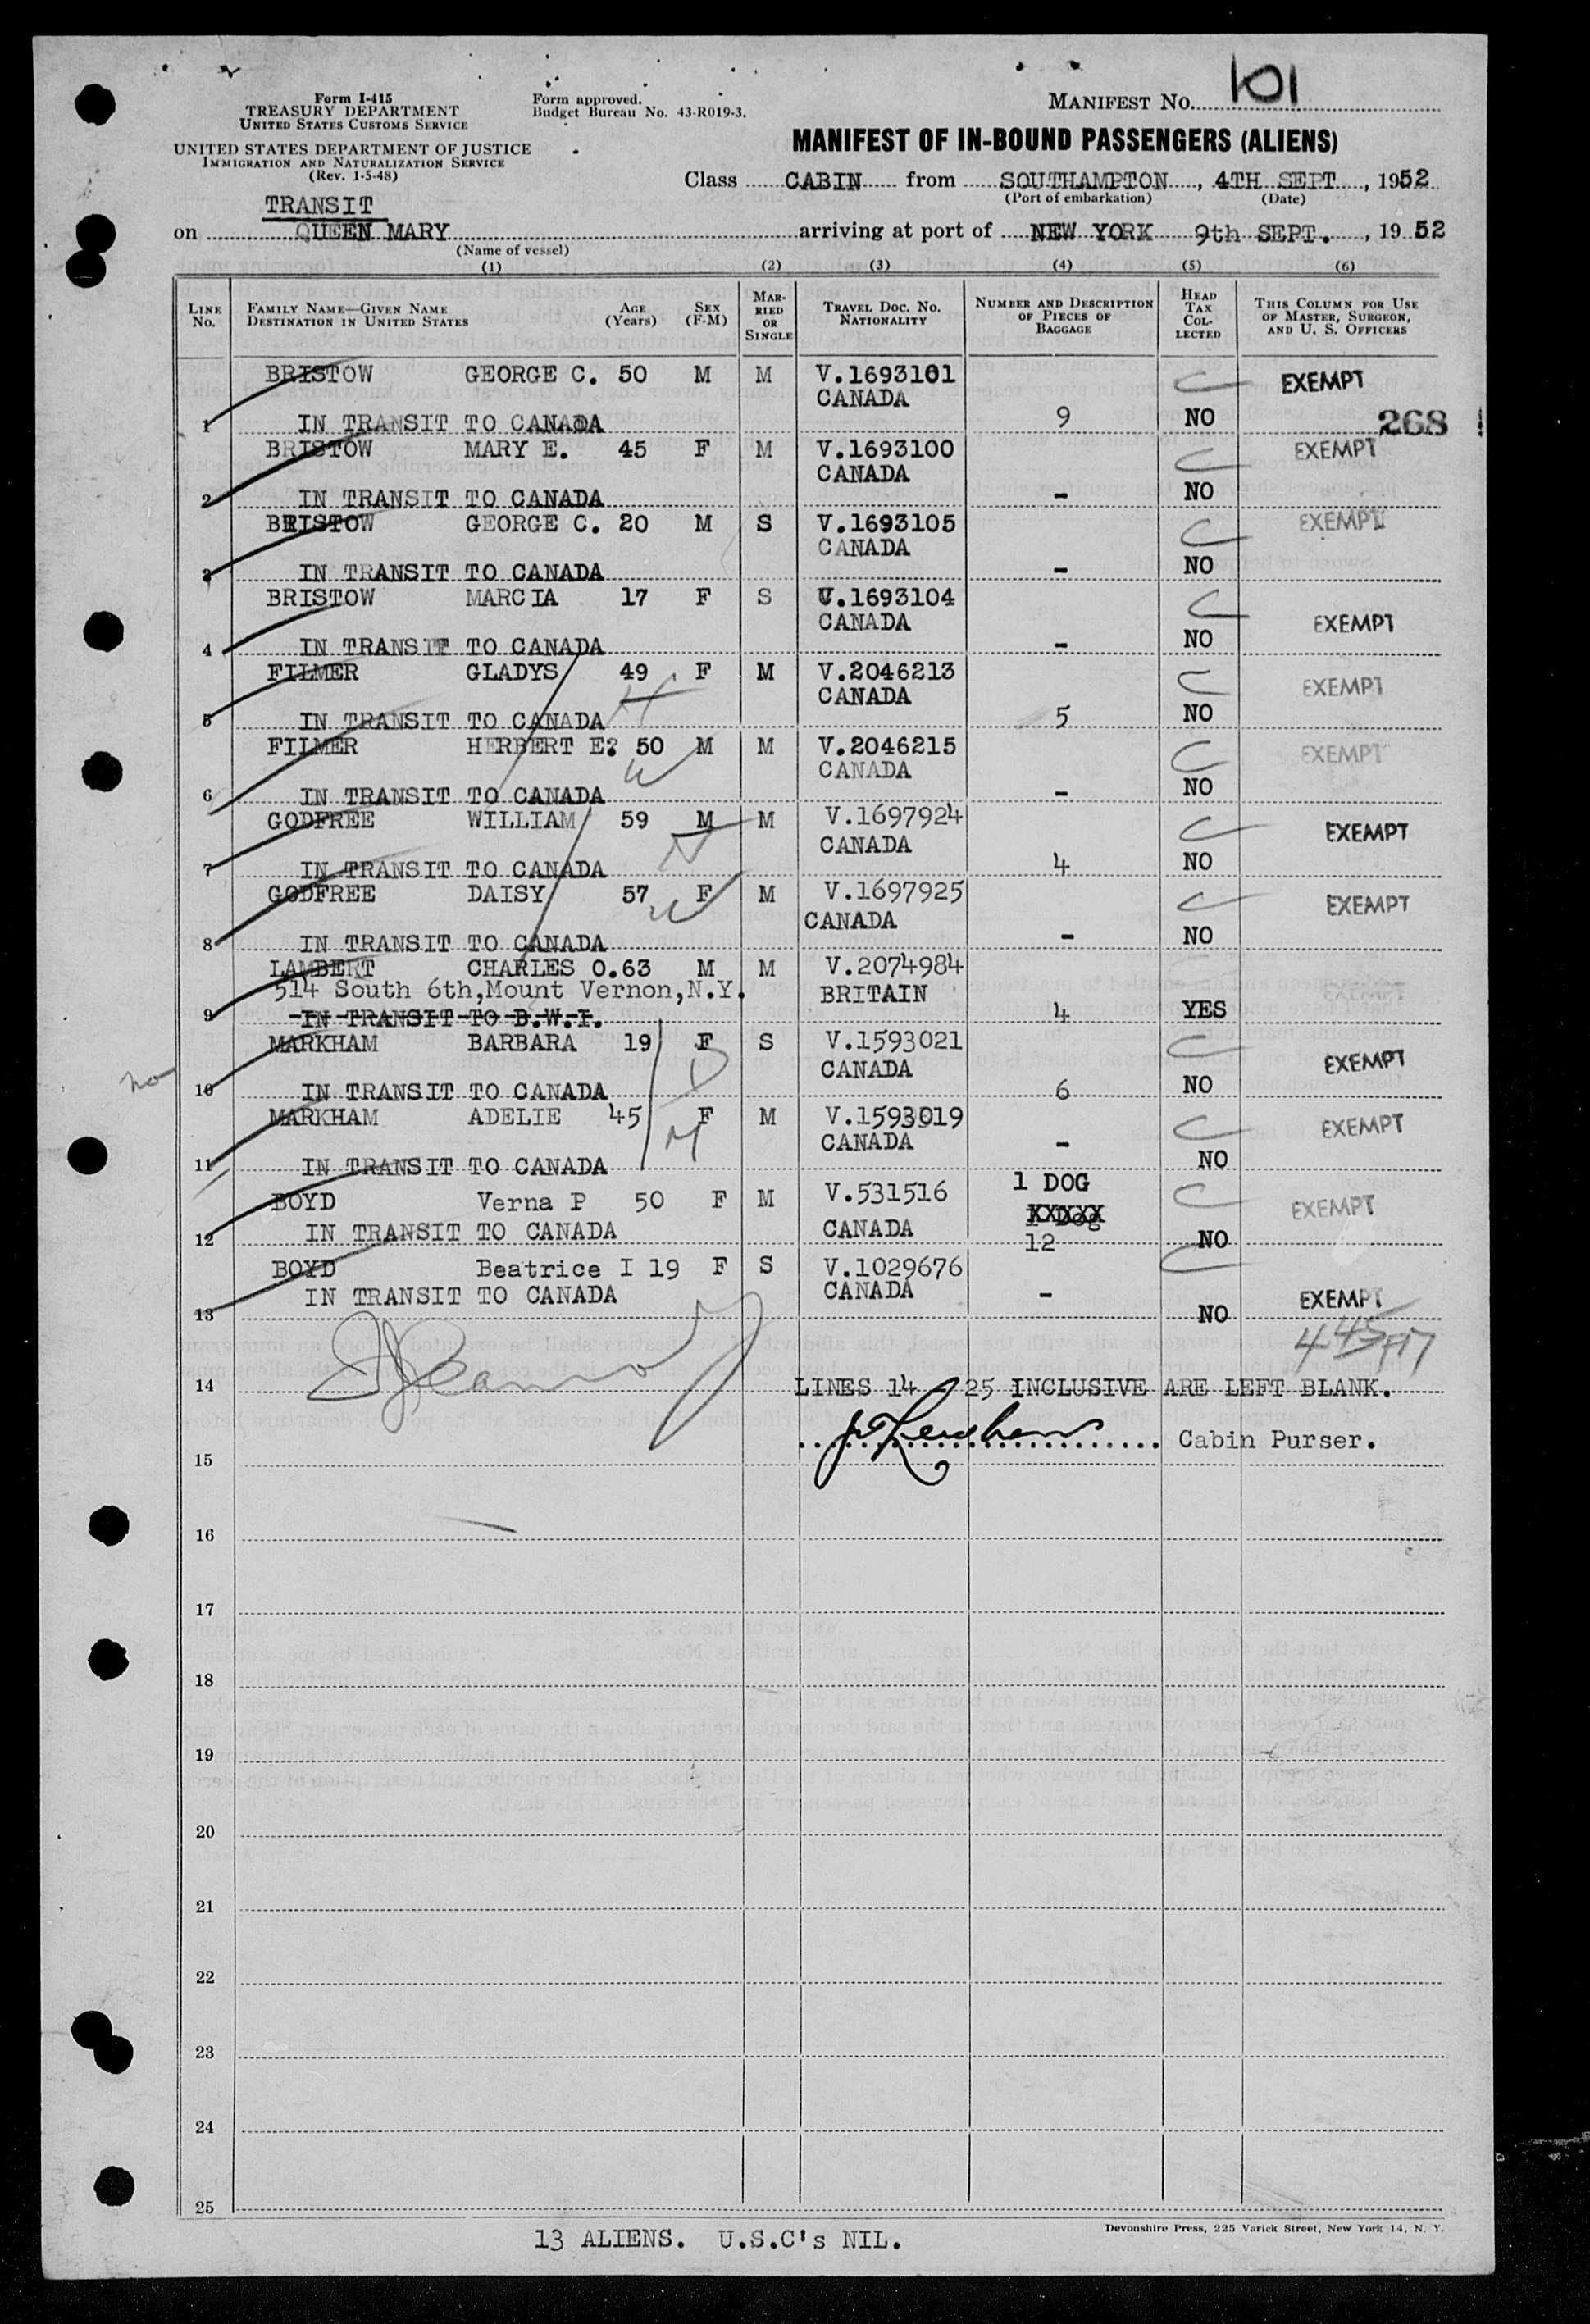 Form I-415
TREASURY DEPARTMENT
UNITED STATES CUSTOMS SERVICE
UNITED STATES DEPARTMENT OF JUSTICE
IMMIGRATION AND NATURALIZATION SERVICE
(Rev. 1-5-48)
Form approved.
Budget Bureau No. 43-R019-3.
MANIFEST NO. 101
MANIFEST OF IN-BOUND PASSENGERS (ALIENS)
Class CABIN from SOUTHAMPTON, 4TH SEPT, 1952
(Port of embarkation) (Date)
TRANSIT
on QUEEN MARY arriving at port of NEW YORK 9th SEPT., 1952
(Name of vessel)
(1) (2) (3) (4) (5) (6)
LINE No. FAMILY NAME—GIVEN NAME DESTINATION IN UNITED STATES AGE (Years) SEX (F-M) MARRIED OR SINGLE TRAVEL DOC. NO. NATIONALITY NUMBER AND DESCRIPTION OF PIECES OF BAGGAGE HEAD TAX COLLECTED THIS COLUMN FOR USE OF MASTER, SURGEON, AND U. S. OFFICERS
BRISTOW GEORGE C. 50 M M V.1693101 C EXEMPT
CANADA
1 IN TRANSIT TO CANADA 9 NO 268
BRISTOW MARY E. 45 F M V.1693100 C EXEMPT
CANADA
2 IN TRANSIT TO CANADA - NO
BRISTOW GEORGE C. 20 M S V.1693105 C EXEMPT
CANADA
3 IN TRANSIT TO CANADA - NO
BRISTOW MARCIA 17 F S V.1693104 C EXEMPT
CANADA
4 IN TRANSIT TO CANADA - NO
FILMER GLADYS 49 F M V.2046213 C EXEMPT
CANADA
5 IN TRANSIT TO CANADA H 5 NO
FILMER HERBERT E? 50 M M V.2046215 C EXEMPT
W CANADA
6 IN TRANSIT TO CANADA - NO
GODFREE WILLIAM 59 M M V.1697924 C EXEMPT
CANADA
7 IN TRANSIT TO CANADA 4 NO
GODFREE DAISY 57 F M V.1697925 C EXEMPT
W CANADA
8 IN TRANSIT TO CANADA - NO
LAMBERT CHARLES O.63 M M V.2074984
514 South 6th,Mount Vernon,N.Y. BRITAIN
9 IN TRANSIT TO B.W.I. 4 YES
MARKHAM BARBARA 19 F S V.1593021 C EXEMPT
no D CANADA
10 IN TRANSIT TO CANADA 6 NO
MARKHAM ADELIE 45 F M V.1593019 C EXEMPT
M CANADA -
11 IN TRANSIT TO CANADA NO
BOYD Verna P 50 F M V.531516 1 DOG C EXEMPT
12 IN TRANSIT TO CANADA CANADA 12 NO
BOYD Beatrice I 19 F S V.1029676 C
13 IN TRANSIT TO CANADA CANADA - NO EXEMPT
14 LINES 14 - 25 INCLUSIVE ARE LEFT BLANK.
15 Cabin Purser.
16
17
18
19
20
21
22
23
24
25
Devonshire Press, 225 Varick Street, New York 14, N. Y.
13 ALIENS. U.S.C's NIL.